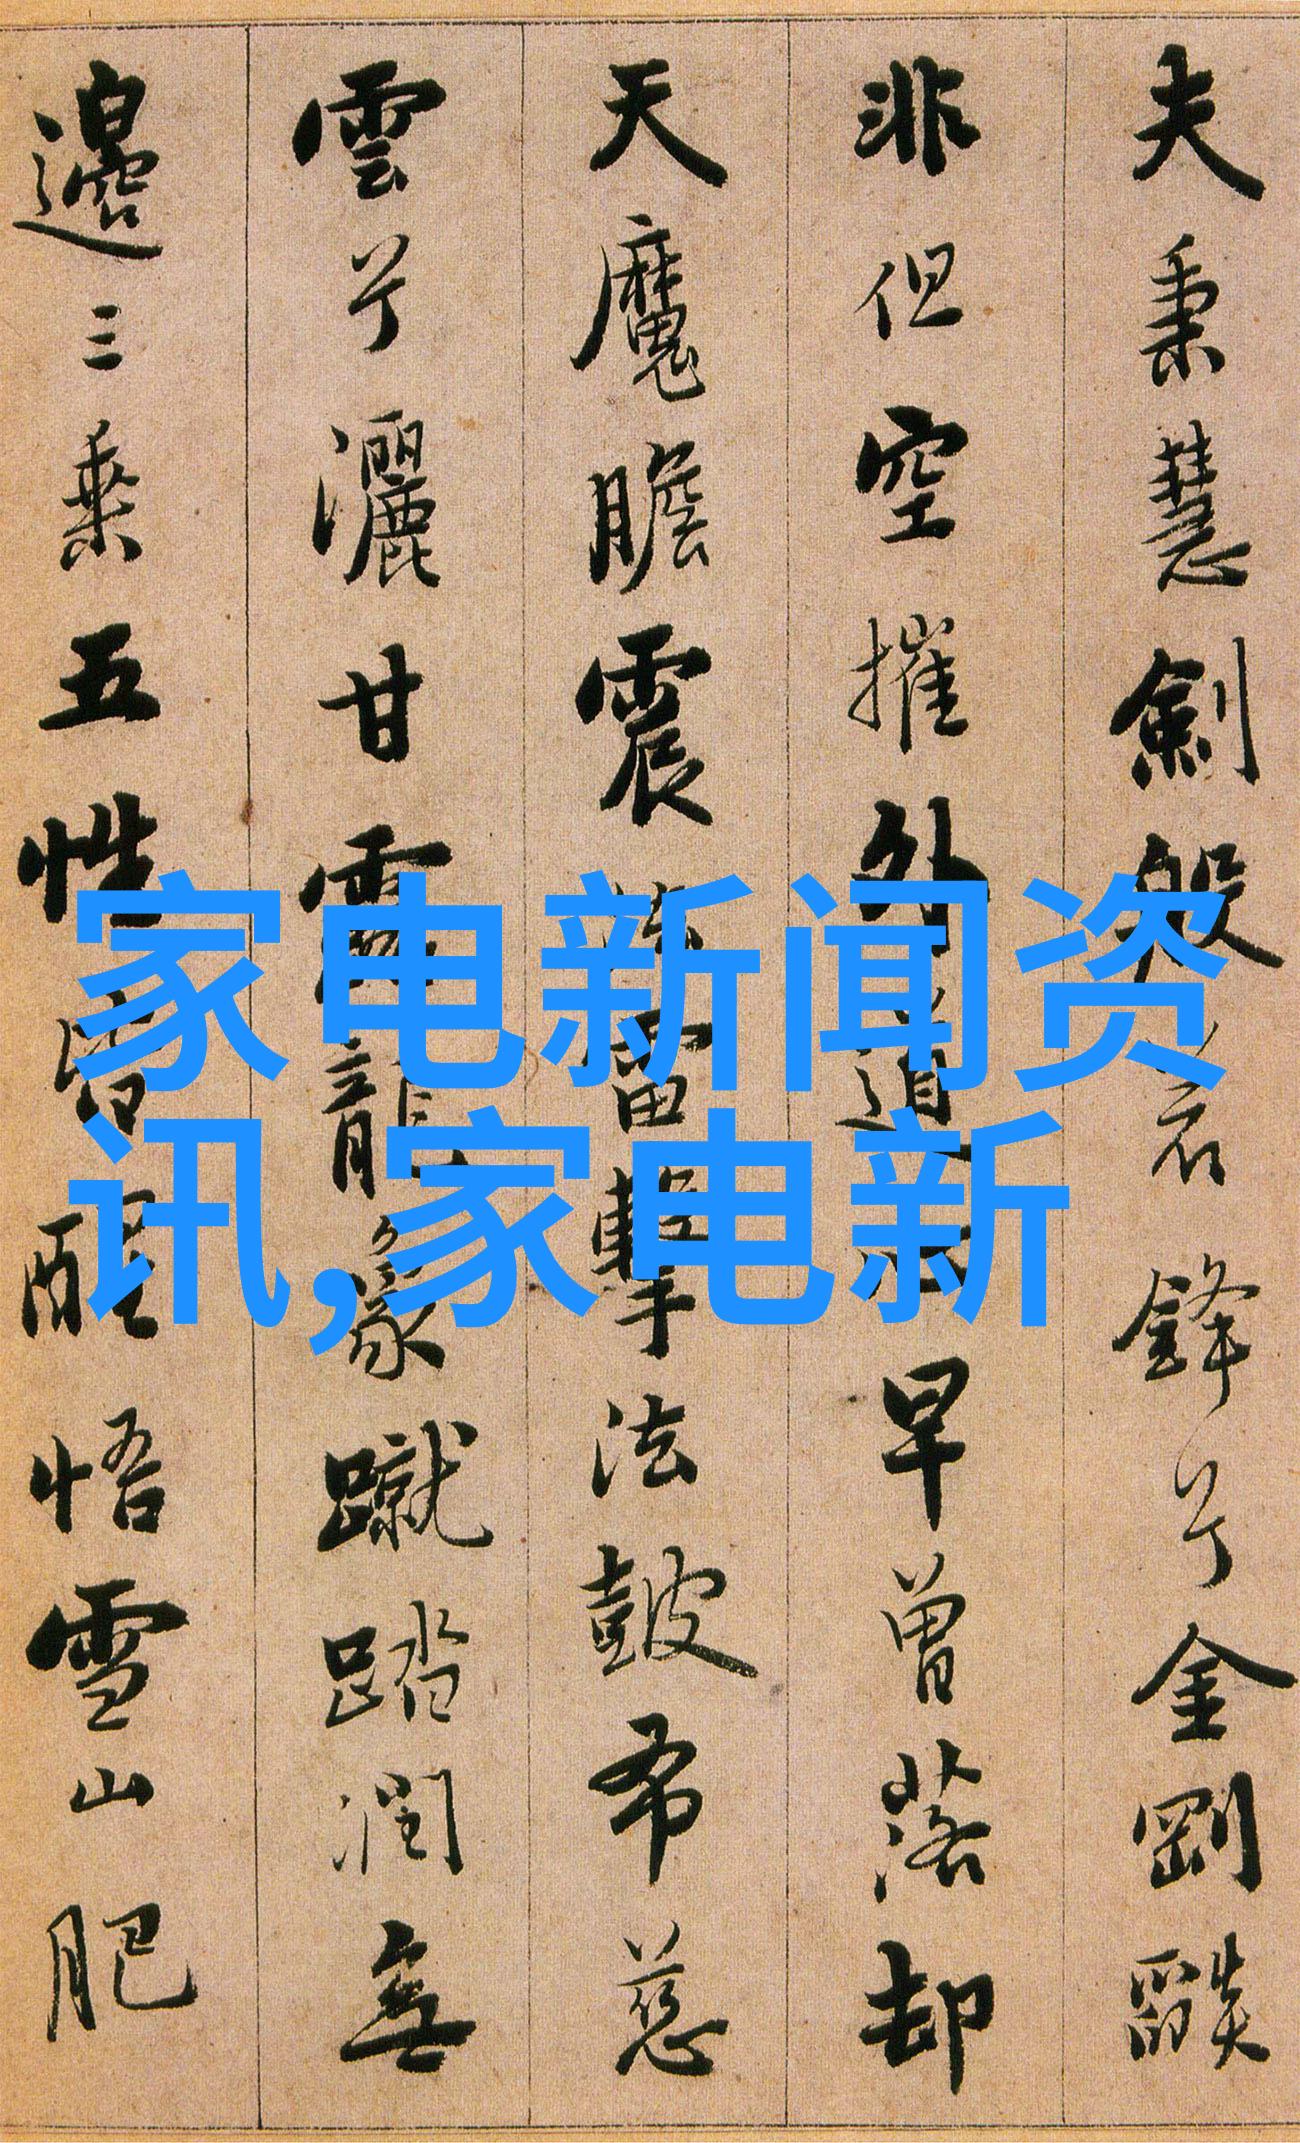 夫秉慧劍般若鋒兮金剛燄
非但空摧外道心早曾落却
天魔膽震法雷擊法皷布慈
雲兮灑甘露龍象蹴踏潤無
邊三乘五性皆醒悟雪山肥
家电新闻资
讯,家电新